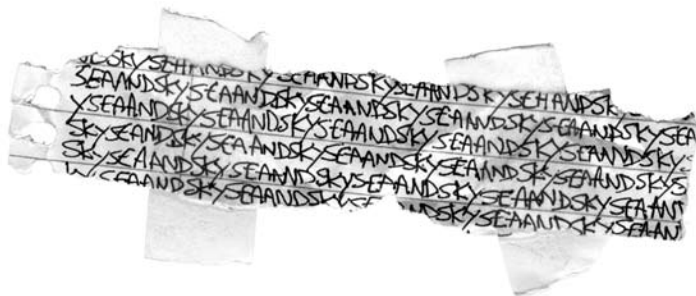 SKYSEAANDSKYSEAANDSKYSEAANDSKYSEAANDSK
SEAANDSKYSEAANDSKYSEAANDSKYSEAANDSKYSEAANDSKYSEA
YSEAANDSKYSEAANDSKYSEAANDSKYSEAANDSKYSEAANDSKYS
SKYSEAANDSKYSEAANDSKYSEAANDSKYSEAANDSKYSEAANDSKYS
SKYSEAANDSKYSEAANDSKYSEAANDSKYSEAANDSKYSEAAN
YSEAANDSKYSEAANDSKYSE NDSKYSEAANDSKYSEAAN